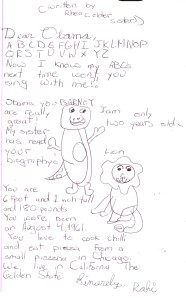 (written by
older
sister)
Dear Obama,
A B C D E F G H I J K L M N O P
Q R S T U V W X Y Z
Now I know my ABCs
next time wont you
sing with me!
Obama you
are really
great!
My sister
has read
your
biography
BARNEY
I am only
two years old
Lion
You are
6 feet and 1 inch tall
and 180 pounds
You were born
on August 4, 1961
You love to cook chili
and eat pizza from a
small pizzeria in Chicago.
We live in California The
Golden State
Sincerely